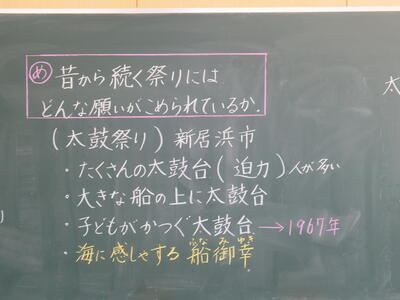 め 昔から続く祭りには
どんな願いがこめられているか.
(太鼓祭り) 新居浜市
・たくさんの太鼓台(迫力) 人が多い
・大きな船の上に太鼓台
・子どもがかつぐ太鼓台 → 1967年
・海に感しゃする 船御幸
ふな み ゆき
太
り